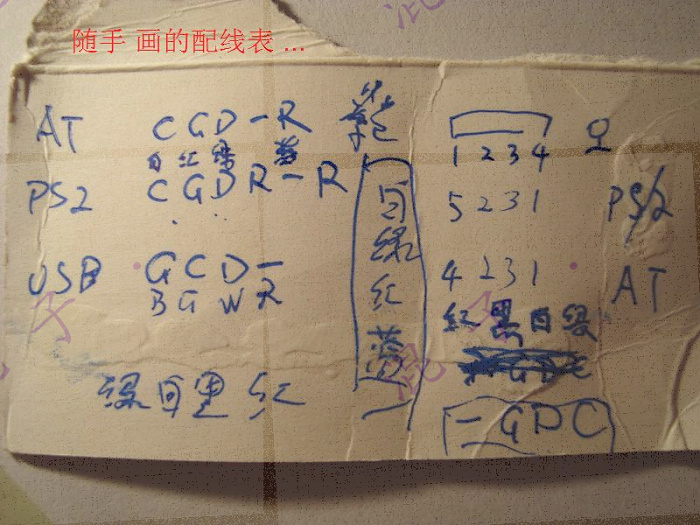 随手 画的配线表 ...
AT C G D - R
白 红 绿 蓝
PS2 C G D R - R
USB G C D -
B G W R
绿 白 黑 红
白
绿
红
蓝
1 2 3 4
5 2 3 1 PS/2
4 2 3 1 AT
红 黑 白 绿
- G D C